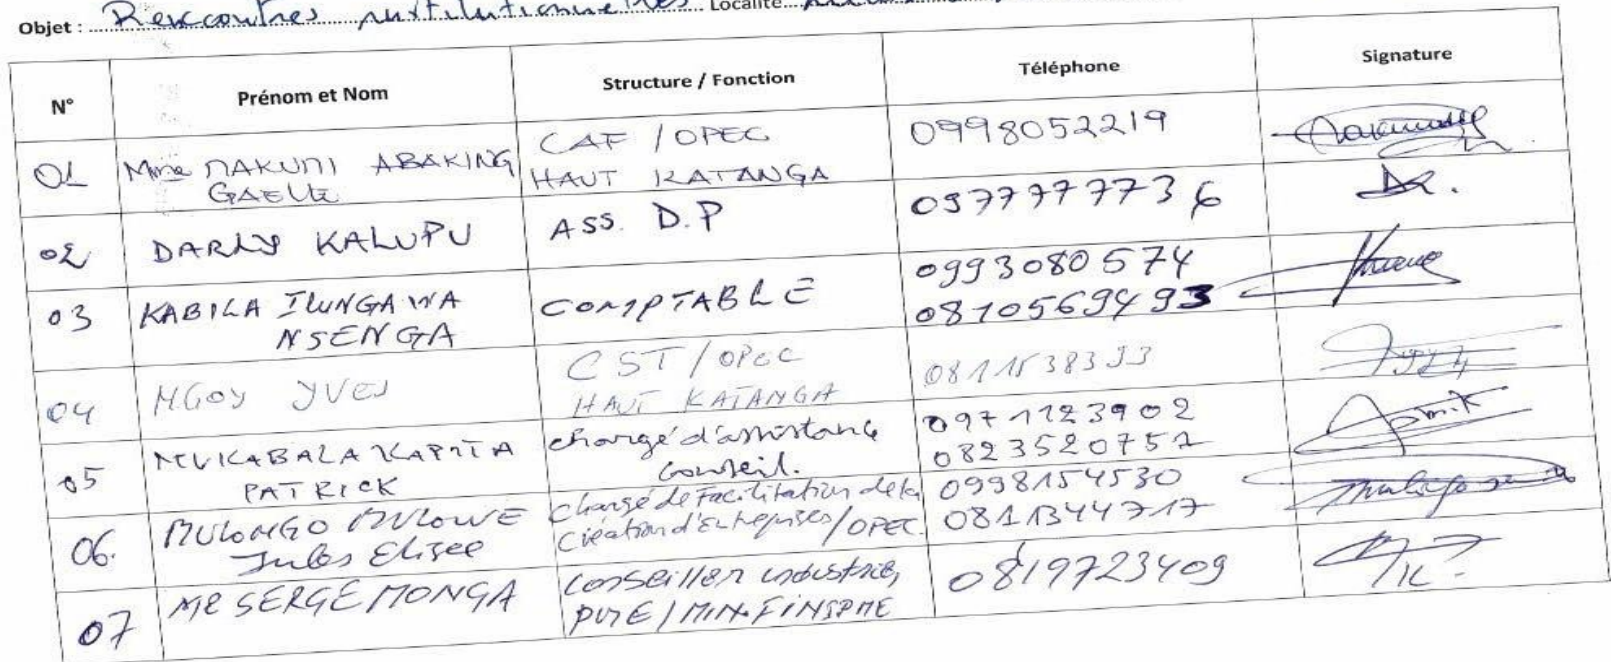 Objet : Rencontres institutionnelles Localité
N° Prénom et Nom Structure / Fonction Téléphone Signature
01 Mme MAKUMI ABAKING GAELLE CAF / OPEC HAUT KATANGA 0998052219
02 DARLY KALUPU ASS. D.P 0977777736
03 KABILA ILUNGA WA NSENGA COMPTABLE 0993080574 0810569493
04 NGOY YVES CST / OPEC HAUT KATANGA 0811538393
05 MUKABALA KAPITA PATRICK chargé d'assistance conseil. 0971123902 0823520751
06. MULONGO MULOWE Jules Elisée chargé de Facilitation de la Création d'Entreprises / OPEC. 0998154530 0811344717
07 MR SERGE MONGA CONSEILLER industrie, PME / MIN. FINSPME 0819723409